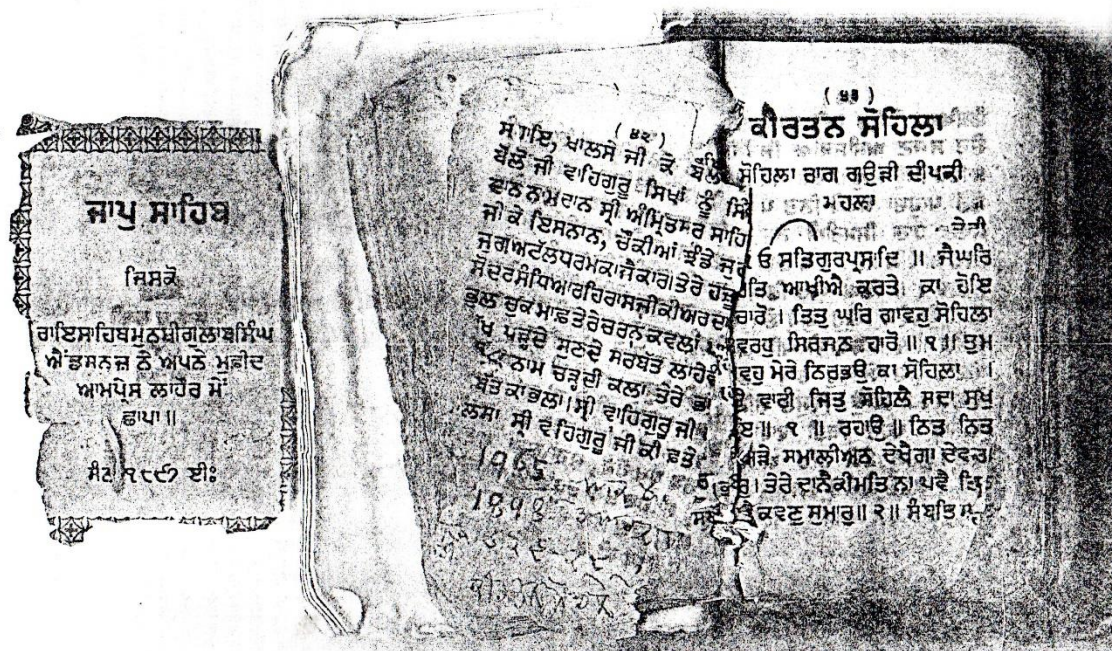 ਜਾਪੁ ਸਾਹਿਬ
ਜਿਸਕੋ
ਰਾਇਸਾਹਿਬਮੁਨਸ਼ੀਗੁਲਾਬਸਿੰਘ
ਐਂਡਸਨਜ਼ ਨੇ ਅਪਨੇ ਮੁਫ਼ੀਦ
ਆਮਪ੍ਰੈਸ ਲਾਹੌਰ ਮੇਂ
ਛਾਪਾ॥
ਈਃ
( ੪੨ )
ਖਾਲਸੇ ਜੀ ਕੋ
ਬੋਲੋ ਜੀ ਵਾਹਿਗੁਰੂ ਸਿਖਾਂ ਨੂੰ
ਨਾਮਦਾਨ ਸ੍ਰੀ ਅੰਮ੍ਰਿਤਸਰ ਸਾਹਿ
ਜੀ ਕੇ ਇਸਨਾਨ, ਚੌਕੀਆਂ ਝੰਡੇ
ਜੁਗਅਟੱਲਧਰਮਕਾਜੈਕਾਰਾਤੇਰੇ ਹਜੂ
ਸੋਦਰਸੰਧਿਆਰਹਿਰਾਸਜੀਕੀਅਰਦਾ
ਭੁਲ ਚੁਕ ਮਾਫ਼ਤੇਰੇਚਰਨਕਵਲਾਂ
ਪੜ੍ਹਦੇ ਸੁਣਦੇ ਸਰਬੱਤ ਲਾਹੇਵੰ
ਨਾਮ ਚੜ੍ਹਦੀ ਕਲਾ ਤੇਰੇ ਭਾ
ਬੱਤ ਕਾ ਭਲਾ। ਸ੍ਰੀ ਵਾਹਿਗੁਰੂ ਜੀ
ਲਸਾ ਸ੍ਰੀ ਵਹਿਗੁਰੂ ਜੀ ਕੀ ਫ਼ਤੇ
( ੪੩ )
ਕੀਰਤਨ ਸੋਹਿਲਾ
ਸੋਹਿਲਾ ਰਾਗ ਗਉੜੀ ਦੀਪਕੀ
ਮਹਲਾ
ੴ ਸਤਿਗੁਰਪ੍ਰਸਾਦਿ ॥ ਜੈਘਰਿ
ਆਖੀਐ ਕਰਤੇ ਕਾ ਹੋਇ
ਚਾਰੋ । ਤਿਤੁ ਘਰਿ ਗਾਵਹੁ ਸੋਹਿਲਾ
ਵਰਹੁ ਸਿਰਜਨ ਹਾਰੋ ॥ ੧ ॥ ਤੁਮ
ਵਹੁ ਮੇਰੇ ਨਿਰਭਉ ਕਾ ਸੋਹਿਲਾ ।
ਵਾਰੀ ਜਿਤੁ ਸੋਹਿਲੈ ਸਦਾ ਸੁਖ
ਇ ॥ ੧ ॥ ਰਹਾਉ ॥ ਨਿਤ ਨਿਤ
ਅੜੇ ਸਮਾਲੀਅਨ ਦੇਖੈਗਾ ਦੇਵਣ
ਤੇਰੇ ਦਾਨੈਕੀਮਤਿ ਨਾ ਪਵੈ
ਕਵਣੁ ਸੁਮਾਰੁ॥ ੨॥ ਸੰਬਤਿ